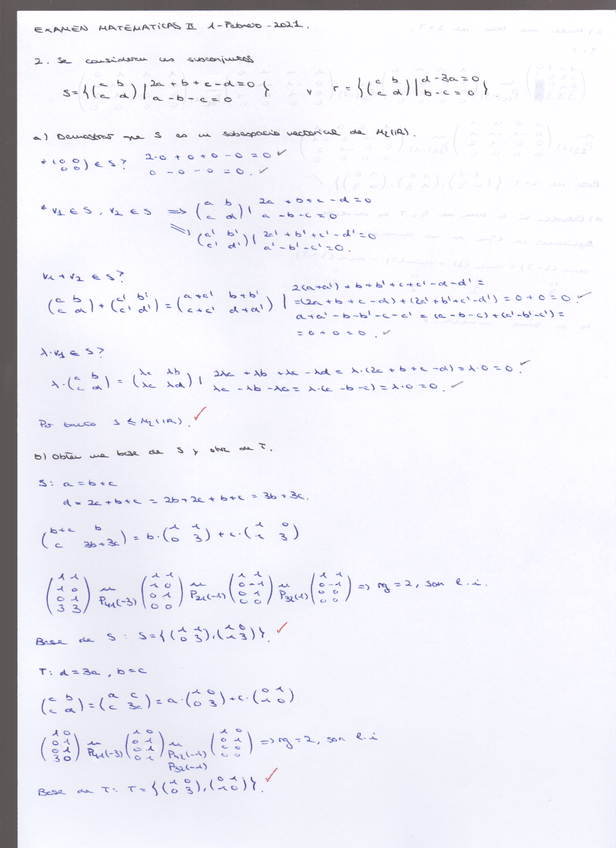 EXAMEN MATEMATICAS II 1-Febrero-2021.
2. Se consideran los subconjuntos
S={(a b; c d) | 2a+b+c-d=0, a-b-c=0} y T={(a b; c d) | d-3a=0, b-c=0}
a) Demostrar que S es un subespacio vectorial de M₂(ℝ).
* (0 0; 0 0) ∈ S? 2·0+0+0-0=0 ✓
0-0-0=0. ✓
* v₁ ∈ S, v₂ ∈ S ⟹ (a b; c d) | 2a+b+c-d=0, a-b-c=0
⟹ (a' b'; c' d') | 2a'+b'+c'-d'=0, a'-b'-c'=0.
v₁+v₂ ∈ S?
(a b; c d)+(a' b'; c' d')=(a+a' b+b'; c+c' d+d') | 2(a+a')+b+b'+c+c'-d-d'=
=(2a+b+c-d)+(2a'+b'+c'-d')=0+0=0. ✓
a+a'-b-b'-c-c'=(a-b-c)+(a'-b'-c')=
=0+0=0. ✓
λ·v₁ ∈ S?
λ·(a b; c d)=(λa λb; λc λd) | 2λa+λb+λc-λd=λ·(2a+b+c-d)=λ·0=0. ✓
λa-λb-λc=λ·(a-b-c)=λ·0=0. ✓
Por tanto S ≤ M₂(ℝ). ✓
b) Obtén una base de S y otra de T.
S: a=b+c
d=2a+b+c=2b+2c+b+c=3b+3c.
(b+c b; c 3b+3c)=b·(1 1; 0 3)+c·(1 0; 1 3)
(1 1; 1 0; 0 1; 3 3) ~ P₄₁(-3) (1 1; 1 0; 0 1; 0 0) ~ P₂₁(-1) (1 1; 0 -1; 0 1; 0 0) ~ P₃₂(1) (1 1; 0 -1; 0 0; 0 0) ⟹ rg=2, son l.i.
Base de S: S={(1 1; 0 3),(1 0; 1 3)}. ✓
T: d=3a, b=c
(a b; c d)=(a c; c 3a)=a·(1 0; 0 3)+c·(0 1; 1 0)
(1 0; 0 1; 0 1; 3 0) ~ P₄₁(-3) (1 0; 0 1; 0 1; 0 0) ~ P₃₂(-1) (1 0; 0 1; 0 0; 0 0) ⟹ rg=2, son l.i
Base de T: T={(1 0; 0 3),(0 1; 1 0)}. ✓